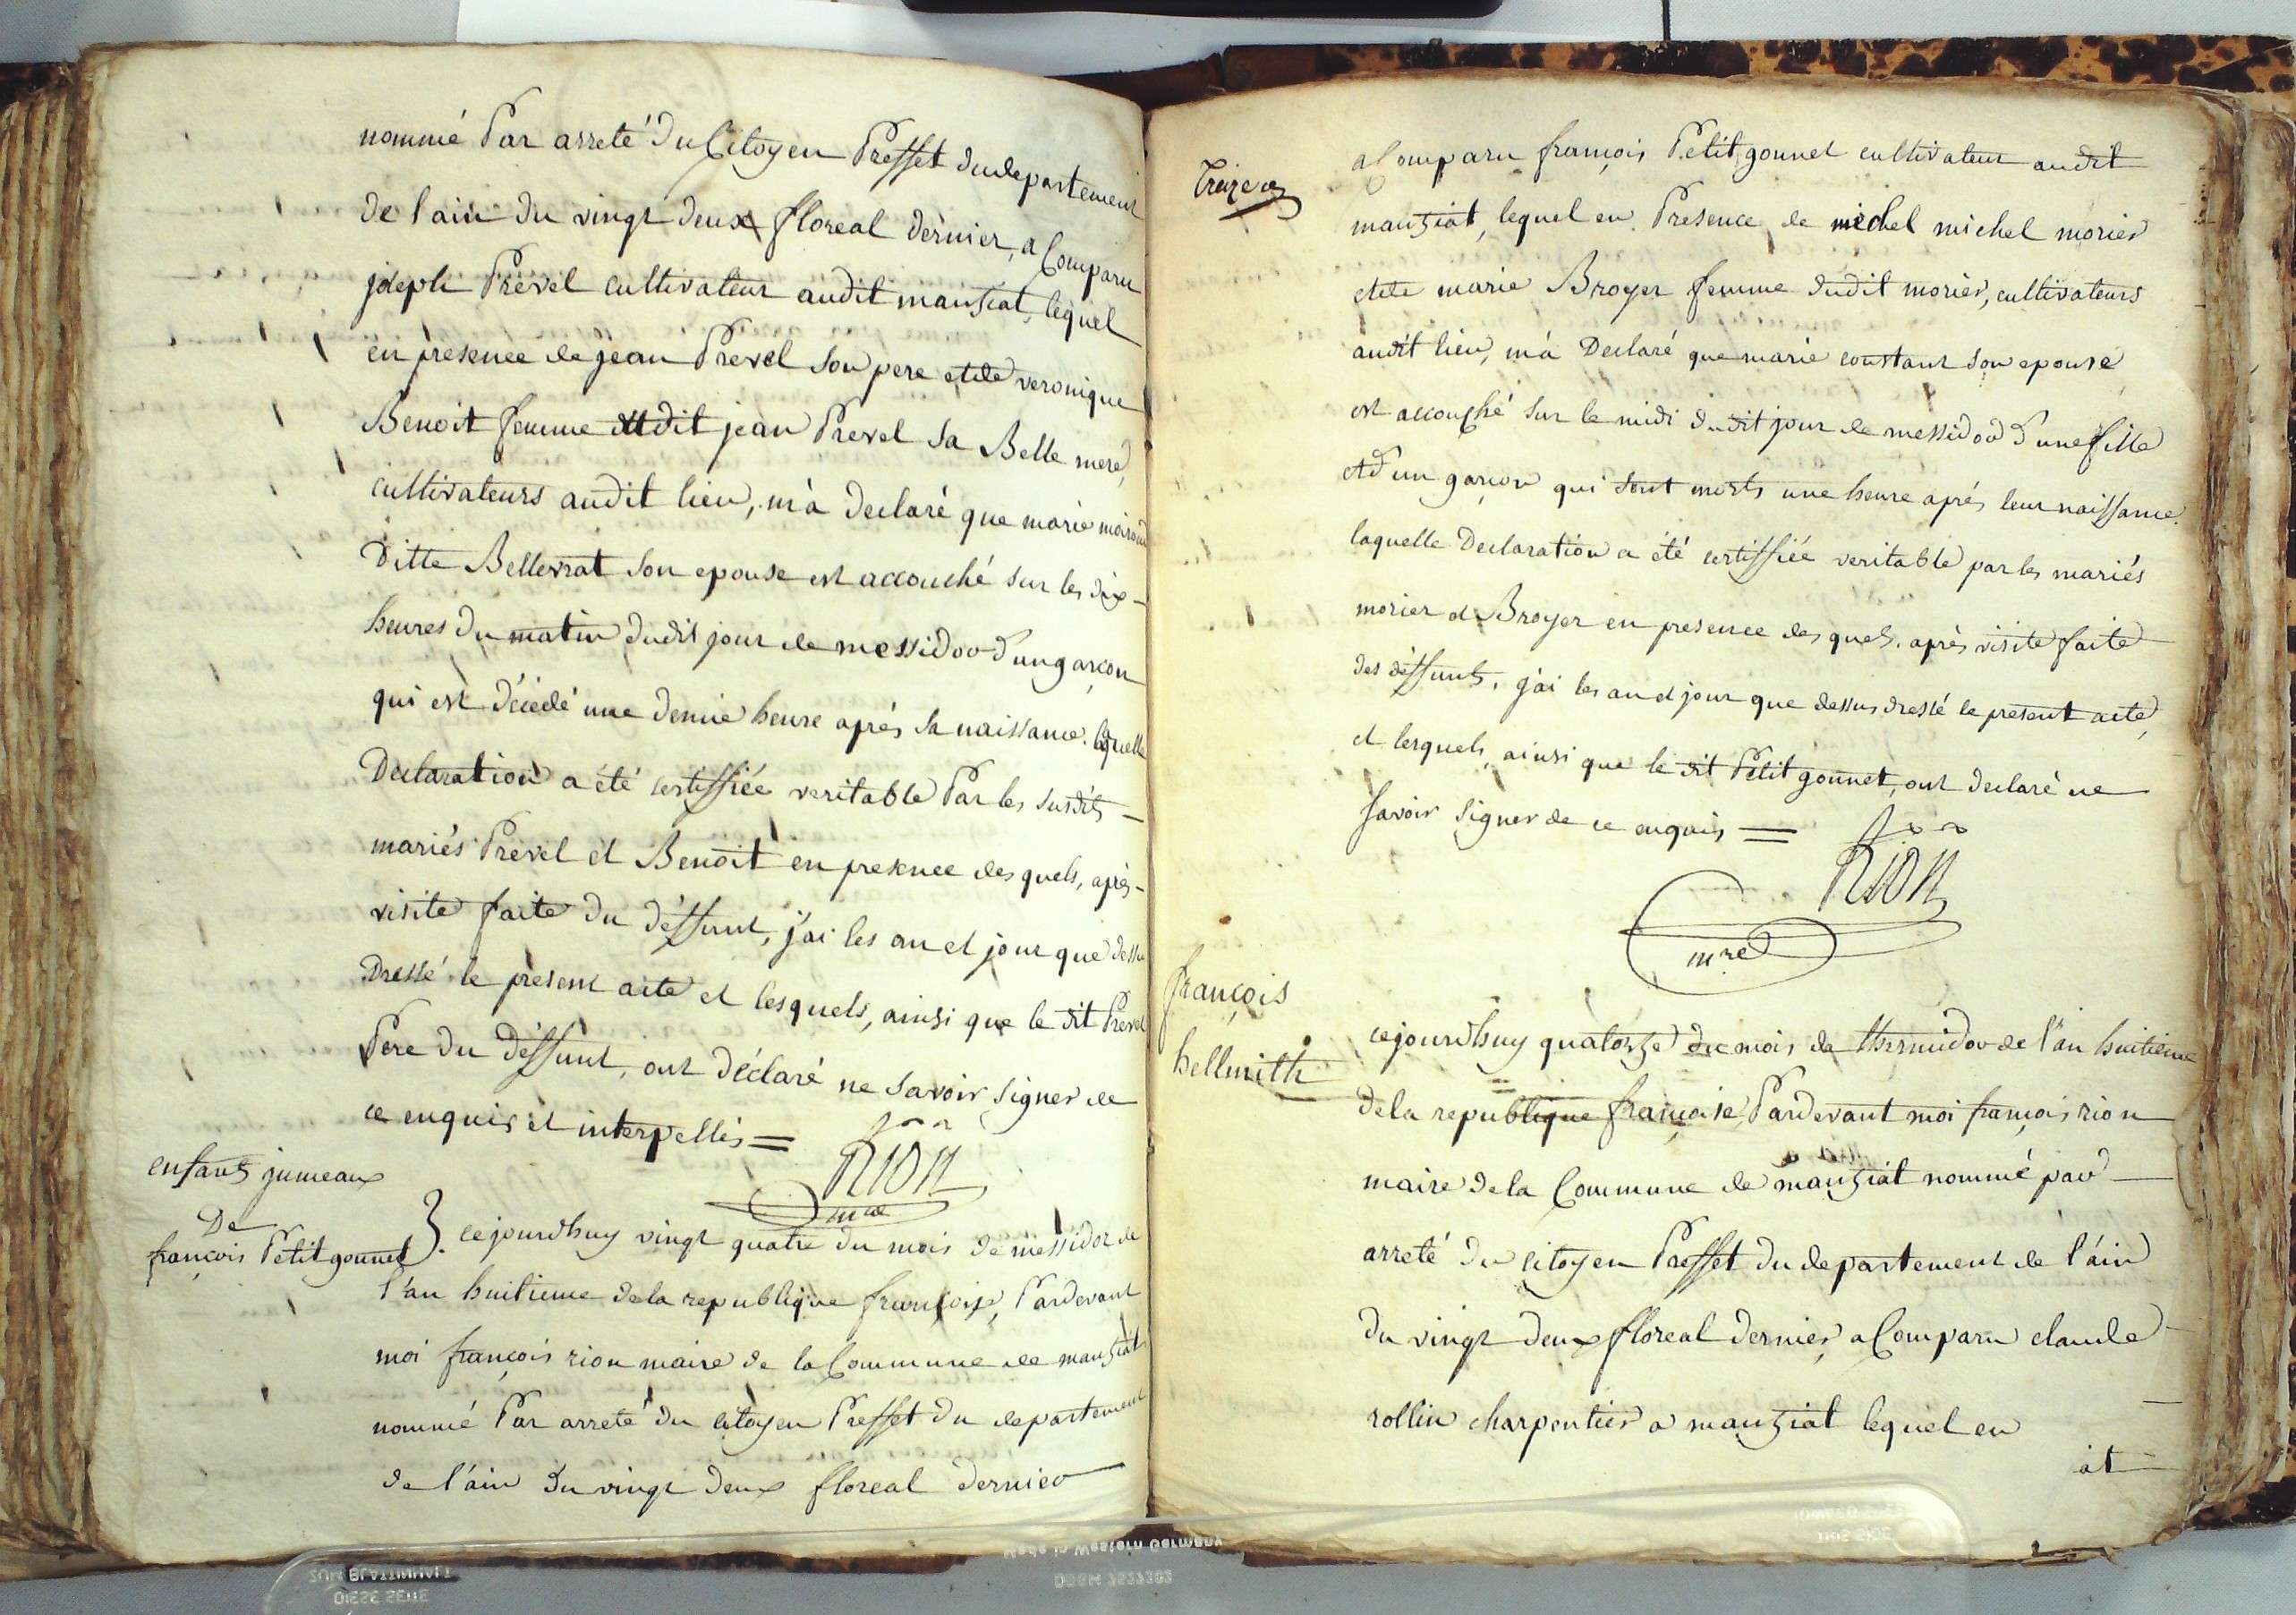 nommé Par arreté du Citoyen Preffet du departement
de l'ain du vingt deux floreal dernier, a Comparu
joseph Prevel cultivateur audit manziat, lequel
en presence de jean Prevel son pere et de veronique
Benoit femme dudit jean Prevel sa Belle mere,
cultivateurs audit lieu, m'a declaré que marie
Ditte Bellevrat son epouse est accouché sur les dix
heures du matin dudit jour de messidor d'un garcon
qui est décédé une demie heure aprés sa naissance. laquelle
Declaration a été certiffiée veritable Par les susdits
mariés Prevel et Benoit en presence des quels, aprés
visite faite du déffunt, j'ai les an et jour que dessus
Dressé le present acte et lesquels, ainsi que le dit Prevel
Pere du déffunt, ont déclaré ne savoir signer de
ce enquis et interpellés =
Rion
mre
enfants jumeaux
De
françois Petitgonnet } cejourdhuy vingt quatre du mois de messidor de
l'an huitieme de la republique françoise, Pardevant
moi françois rion maire de la Commune de manziat
nommé Par arreté du citoyen Preffet du departement
de l'ain du vingt deux floreal dernier
Treize
a Comparu françois Petitgonnet cultivateur audit
manziat, lequel en Presence de michel michel morier
et de marie Broyer femme dudit morier, cultivateurs
audit lieu, m'a Declaré que marie constant son epouse
est accouché sur le midi dudit jour de messidor d'une fille
et d'un garcon qui sont morts une heure aprés leur naissance.
laquelle Declaration a été certiffiée veritable par les mariés
morier et Broyer en presence des quels, aprés visite faite
des déffunts, j'ai les an et jour que dessus dressé le present acte,
et lesquels, ainsi que le dit Petitgonnet, ont declaré ne
savoir signer de ce enquis =
Rion
mre
françois
hellmith
cejourdhuy quatorze du mois de thermidor de l'an huitieme
de la republique françoise, Pardevant moi françois rion
maire de la Commune de manziat nommé par
arreté du citoyen Preffet du departement de l'ain
du vingt deux floreal dernier, a Comparu claude
rollin charpentier a manziat lequel en
at